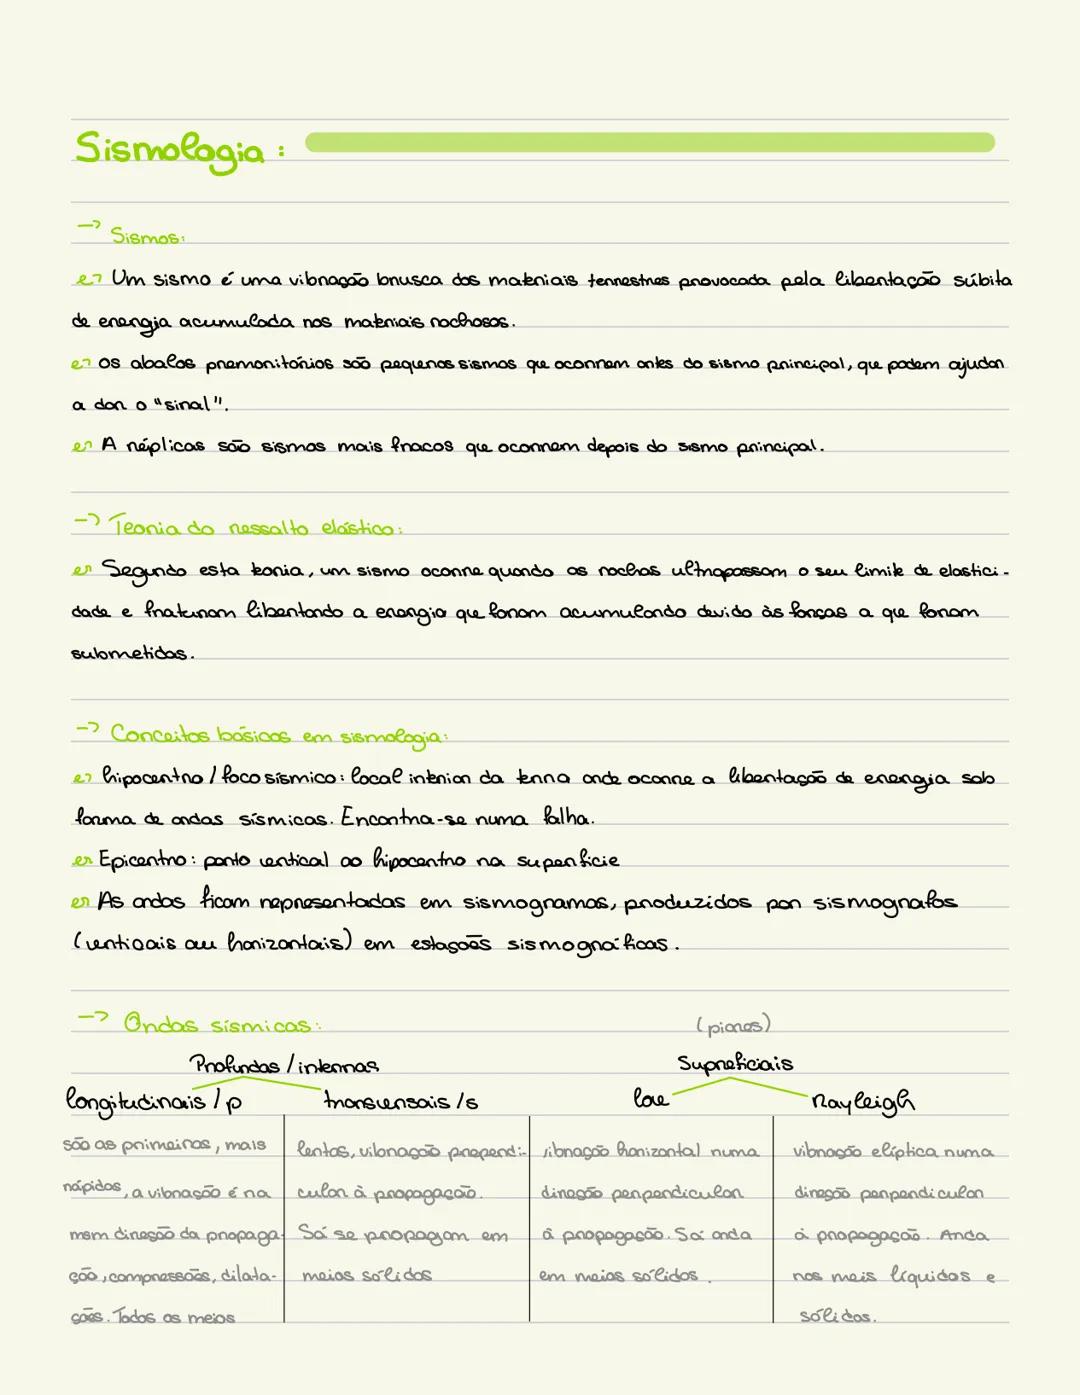 Sismologia :
-> Sismos:
Um sismo é uma vibração brusca dos materiais terrestres provocada pela libertação súbita
de energia acumulada nos materiais rochosos.
os abalos premonitórios são pequenos sismos que ocorrem antes do sismo principal, que podem ajudar
a dar o "sinal".
A réplicas são sismos mais fracos que ocorrem depois do sismo principal.
-> Teoria do ressalto elástico:
Segundo esta teoria, um sismo ocorre quando as rochas ultrapassam o seu limite de elastici-
dade e fraturam libertando a energia que foram acumulando devido às forças a que foram
submetidas.
-> Conceitos básicos em sismologia:
hipocentro / foco sísmico: local interior da terra onde ocorre a libertação de energia sob
forma de ondas sísmicas. Encontra-se numa falha.
Epicentro: ponto vertical ao hipocentro na superfície
As ondas ficam representadas em sismogramas, produzidos por sismografos
(verticais ou horizontais) em estações sismográficas.
-> Ondas sísmicas:
(piores)
Profundas / internas
Supreficiais
longitudinais / p
transversais / s
love
Rayleigh
são as primeiras, mais
rápidas, a vibração é na
mesm direção da propaga-
ção, compressões, dilata-
ções. Todos os meios
lentas, vibração prependi-
cular à propagação.
Só se propagam em
meios sólidos
vibração horizontal numa
direção perpendicular
à propagação. Só anda
em meios sólidos.
vibração elíptica numa
direção perpendicular
à propagação. Anda
nos meis líquidos e
sólidos.